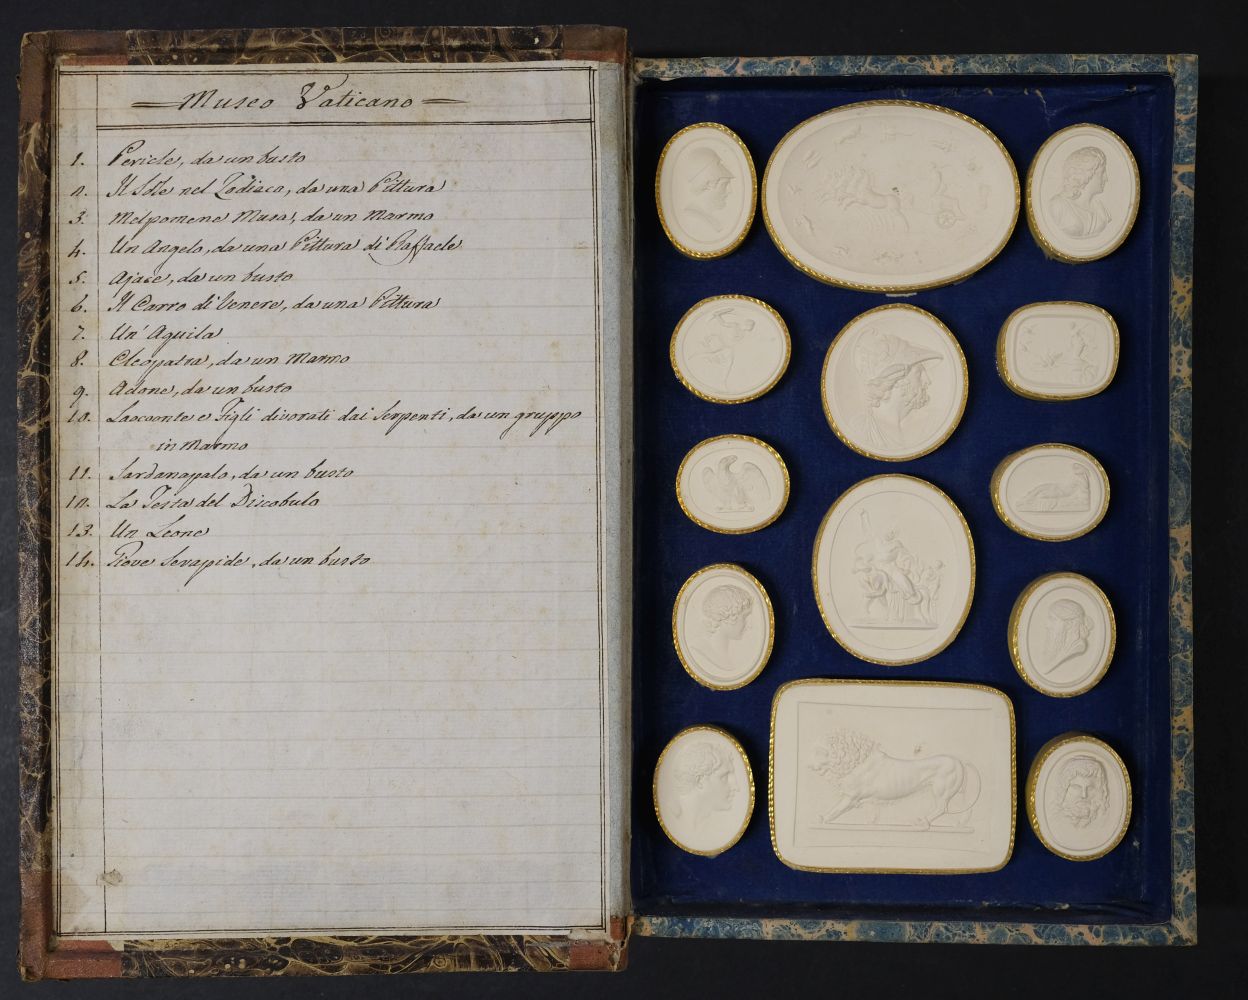 Museo Vaticano
1. Pericle, da un busto
2. Il Sole nel Zodiaco, da una Pittura
3. Melpomene Musa, da un Marmo
4. Un Angelo, da una Pittura di Raffaele
5. Ajace, da un busto
6. Il Carro di Venere, da una Pittura
7. Un' Aquila
8. Cleopatra, da un Marmo
9. Adone, da un busto
10. Laocoonte e Figli divorati dai Serpenti, da un gruppo
in Marmo
11. Sardanappalo, da un busto
12. La Testa del Discobulo
13. Un Leone
14. Giove Serapide, da un busto